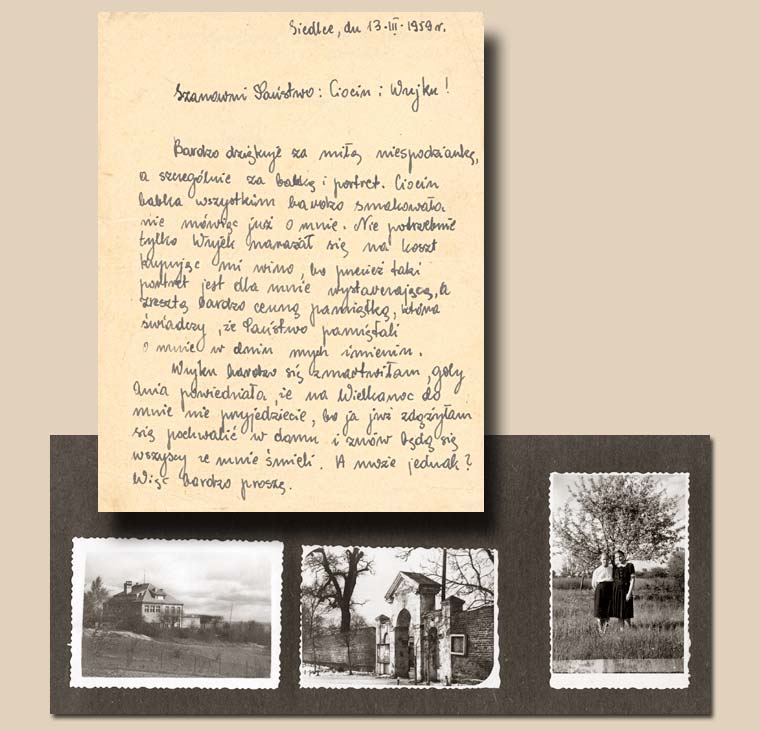 Siedlce, dn 13.III.1959 r.
Szanowni Państwo: Ciocin i Wujku!
Bardzo dziękuję za miłą niespodziankę,
a szczególnie za babkę i portret. Ciocin
babka wszystkim bardzo smakowała
nie mówiąc już o mnie. Nie potrzebnie
tylko Wujek narażał się na koszt
kupując mi wino, bo przecież taki
portret jest dla mnie wystarczającą, a
zresztą bardzo cenną pamiątką, która
świadczy, że Państwo pamiętali
o mnie w dniu mych imienin.
Wujku bardzo się zmartwiłam, gdy
Ania powiedziała, że na Wielkanoc do
mnie nie przyjedziecie, bo ja już zdążyłam
się pochwalić w domu i znów będą się
wszyscy ze mnie śmieli. A może jednak?
Więc bardzo proszę.